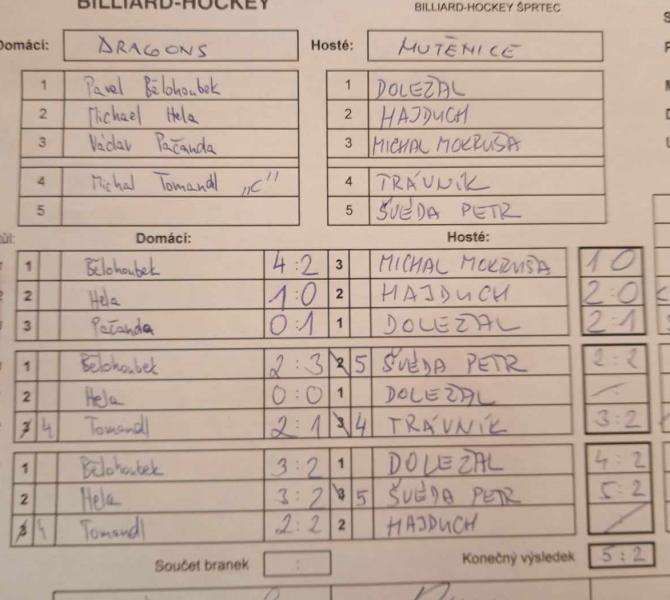 BILLIARD-HOCKEY BILLIARD-HOCKEY ŠPRTEC
Domácí: DRAGONS Hosté: MUTĚNICE
1 Pavel Bělohoubek 1 DOLEŽAL
2 Michael Hela 2 HAJDUCH
3 Václav Pačanda 3 MICHAL MOKRUŠA
4 Michal Tomandl "C" 4 TRÁVNÍK
5 5 ŠVÉDA PETR
Domácí: Hosté:
1 Bělohoubek 4:2 3 MICHAL MOKRUŠA 1 0
2 Hela 1:0 2 HAJDUCH 2:0
3 Pačanda 0:1 1 DOLEŽAL 2:1
1 Bělohoubek 2:3 2 5 ŠVÉDA PETR 2:2
2 Hela 0:0 1 DOLEŽAL
3 4 Tomandl 2:1 3 4 TRÁVNÍK 3:2
1 Bělohoubek 3:2 1 DOLEŽAL 4:2
2 Hela 3:2 3 5 ŠVÉDA PETR 5:2
3 4 Tomandl 2:2 2 HAJDUCH
Součet branek : Konečný výsledek 5:2